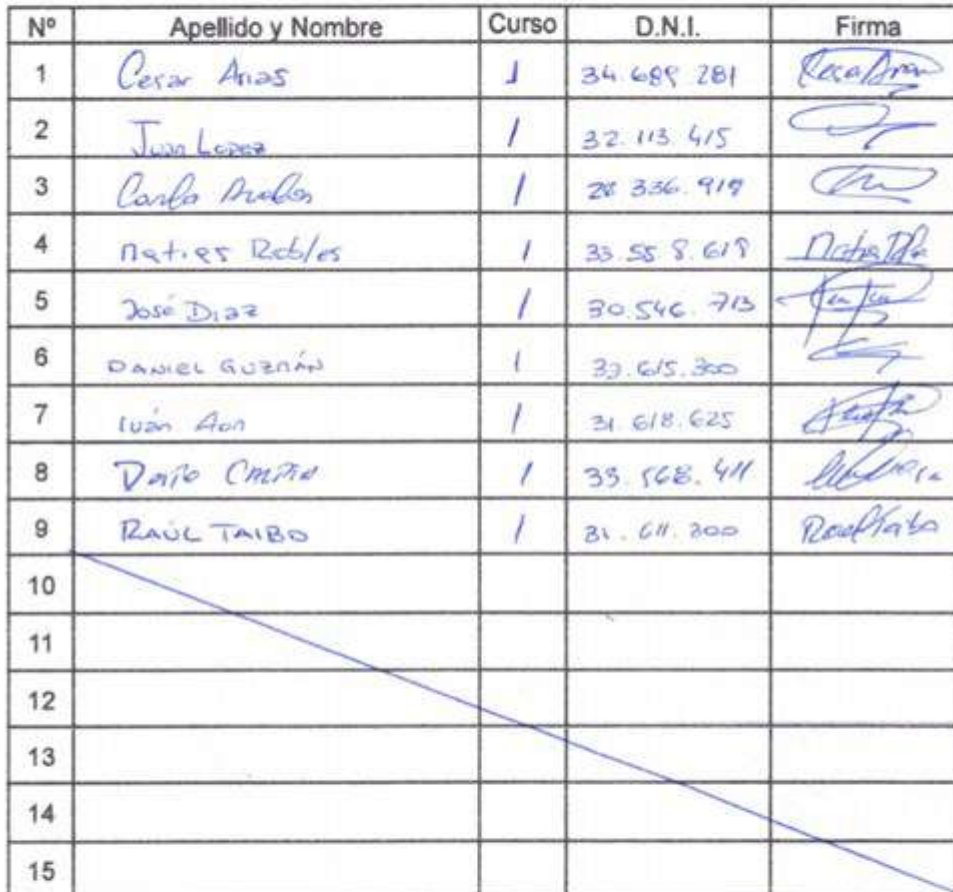 Nº Apellido y Nombre Curso D.N.I. Firma
1 Cesar Arias 1 34.689.281
2 Juan Lopez 1 32.113.415
3 1 28.336.919
4 Matias Robles 1 33.558.619
5 José Diaz 1 30.546.713
6 DANIEL GUZMÁN 1 615.300
7 Iván 1 31.618.625
8 1 33.568.411
9 RAÚL TAIBO 1 31.611.300 Raul Taibo
10
11
12
13
14
15